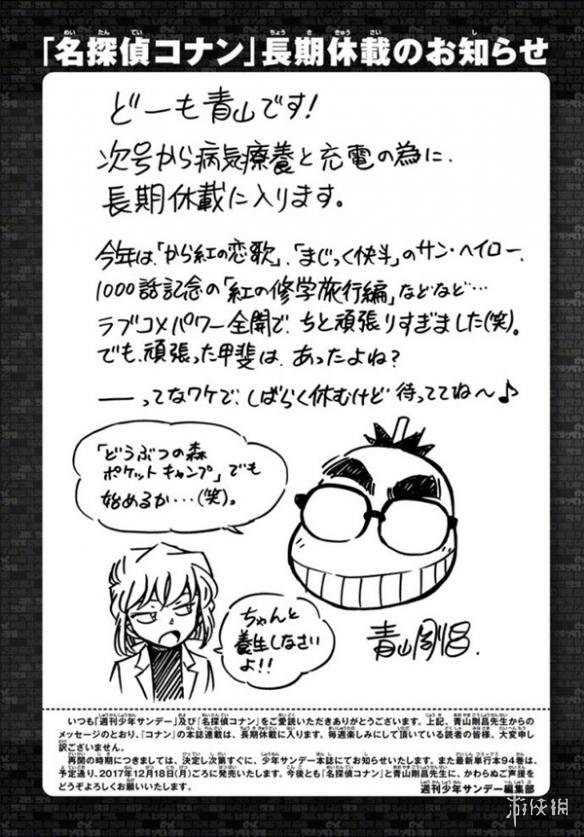 「名探偵コナン」長期休載のお知らせ
どーも青山です!
次号から病気療養と充電の為に、
長期休載に入ります。
今年は、「から紅の恋歌」、「まじっく快斗」のサン・ヘイロー、
1000話記念の「紅の修学旅行編」などなど…
ラブコメパワー全開で、ちと頑張りすぎました(笑)。
でも、頑張った甲斐は、あったよね?
――ってなワケで、しばらく休むけど 待っててね〜♪
「どうぶつの森
ポケットキャンプ」でも
始めるか…(笑)。
ちゃんと
養生しなさい
よ!!
青山剛昌.
いつも「週刊少年サンデー」及び「名探偵コナン」をご愛読いただきありがとうございます。上記、青山剛昌先生からの
メッセージのとおり、「コナン」の本誌連載は、長期休載に入ります。毎週楽しみにして頂いている読者の皆様、大変申し
訳ございません。
再開の時期につきましては、決定し次第すぐに、少年サンデー本誌にてお知らせいたします。また最新単行本94巻は、
予定通り、2017年12月18日(月)ごろに発売いたします。今後とも「名探偵コナン」と青山剛昌先生に、かわらぬご声援を
どうぞよろしくお願いいたします。
週刊少年サンデー編集部
游侠网